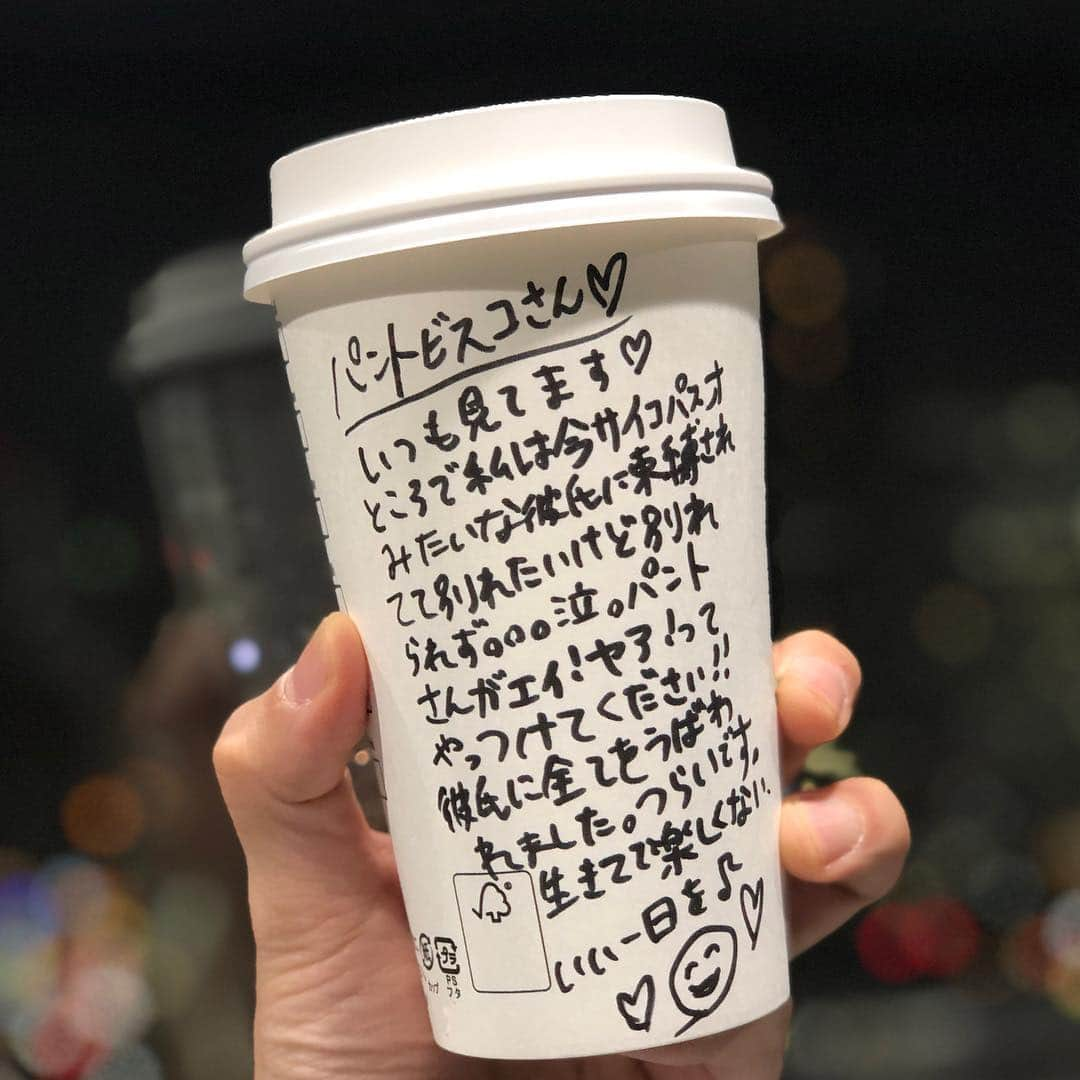 パントビスコさん♡
いつも見てます♡
ところで私は今サイコパスオ
みたいな彼氏に束縛され
てて別れたいけど別れ
られず。。。泣。パント
さんがエイ!ヤア!って
やっつけてください!!
彼氏に全てをうばわ
れました。つらいです。
生きてて楽しくない。
いい一日を♪
紙
カップ
プラ
PS
フタ